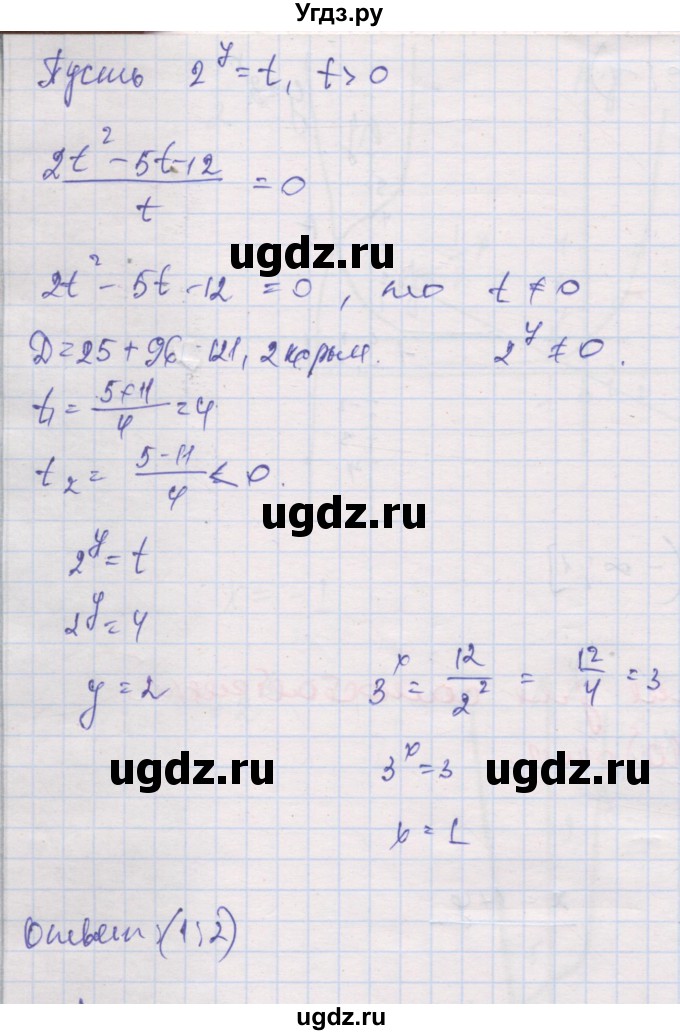 Угдз.ру
Пусть 2^y = t, t > 0
(2t^2 - 5t - 12)/t = 0
ugdz.ru
2t^2 - 5t - 12 = 0, то t ≠ 0
D = 25 + 96 = 121, 2 корня. 2^y ≠ 0.
t1 = (5+11)/4 = 4
t2 = (5-11)/4 < 0.
ugdz.ru
2^y = t
2^y = 4
y = 2 3^x = 12/2^2 = 12/4 = 3
ugdz.ru 3^x = 3 ugdz.ru
x = 1
Ответ: (1; 2)
ugdz.ru